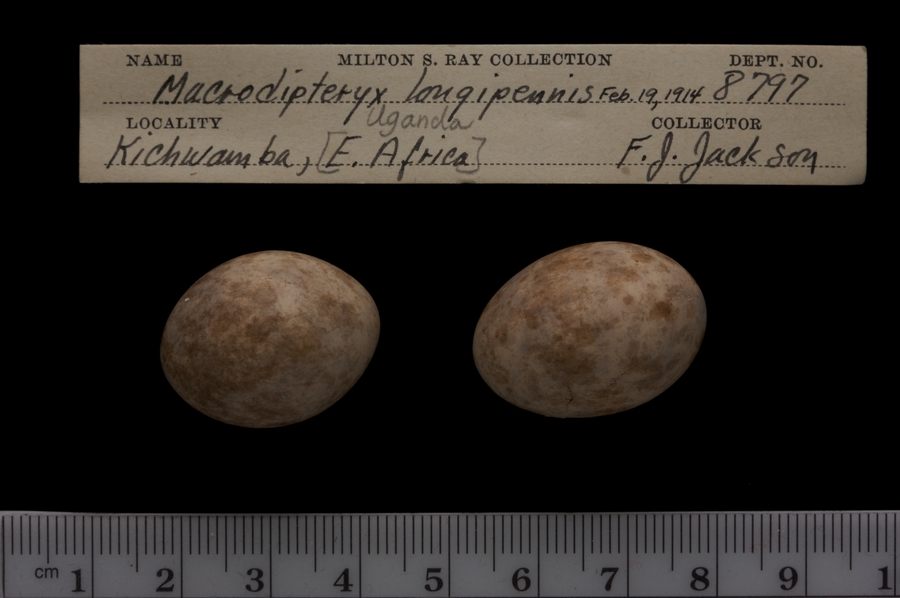 NAME MILTON S. RAY COLLECTION DEPT. NO.
Macrodipteryx longipennis Feb. 19, 1914 8797
LOCALITY Uganda COLLECTOR
Kichwamba, [E. Africa] F. J. Jackson
cm 1 2 3 4 5 6 7 8 9 1